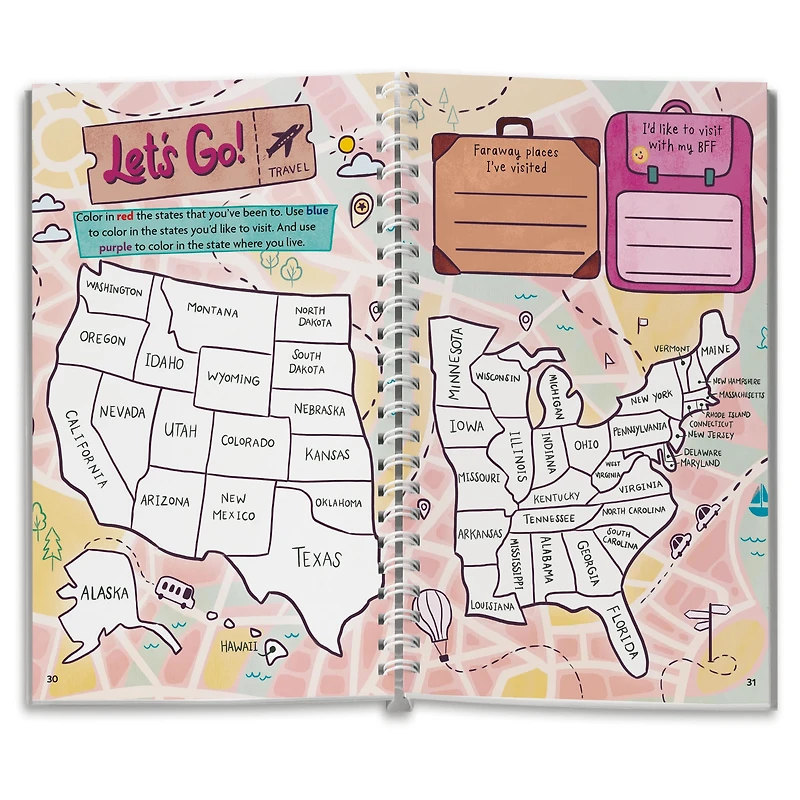 Let's Go!
TRAVEL
Color in red the states that you've been to. Use blue
to color in the states you'd like to visit. And use
purple to color in the state where you live.
WASHINGTON
MONTANA
NORTH
DAKOTA
OREGON
IDAHO
SOUTH
DAKOTA
WYOMING
NEBRASKA
NEVADA
UTAH
COLORADO
CALIFORNIA
KANSAS
ARIZONA
NEW
MEXICO
OKLAHOMA
TEXAS
ALASKA
HAWAII
30
Faraway places
I've visited
I'd like to visit
with my BFF
MINNESOTA
WISCONSIN
MICHIGAN
VERMONT
MAINE
NEW HAMPSHIRE
MASSACHUSETTS
NEW YORK
RHODE ISLAND
CONNECTICUT
IOWA
ILLINOIS
INDIANA
OHIO
PENNSYLVANIA
NEW JERSEY
DELAWARE
MARYLAND
MISSOURI
WEST
VIRGINIA
VIRGINIA
KENTUCKY
NORTH CAROLINA
TENNESSEE
ARKANSAS
SOUTH
CAROLINA
MISSISSIPPI
ALABAMA
GEORGIA
LOUISIANA
FLORIDA
31